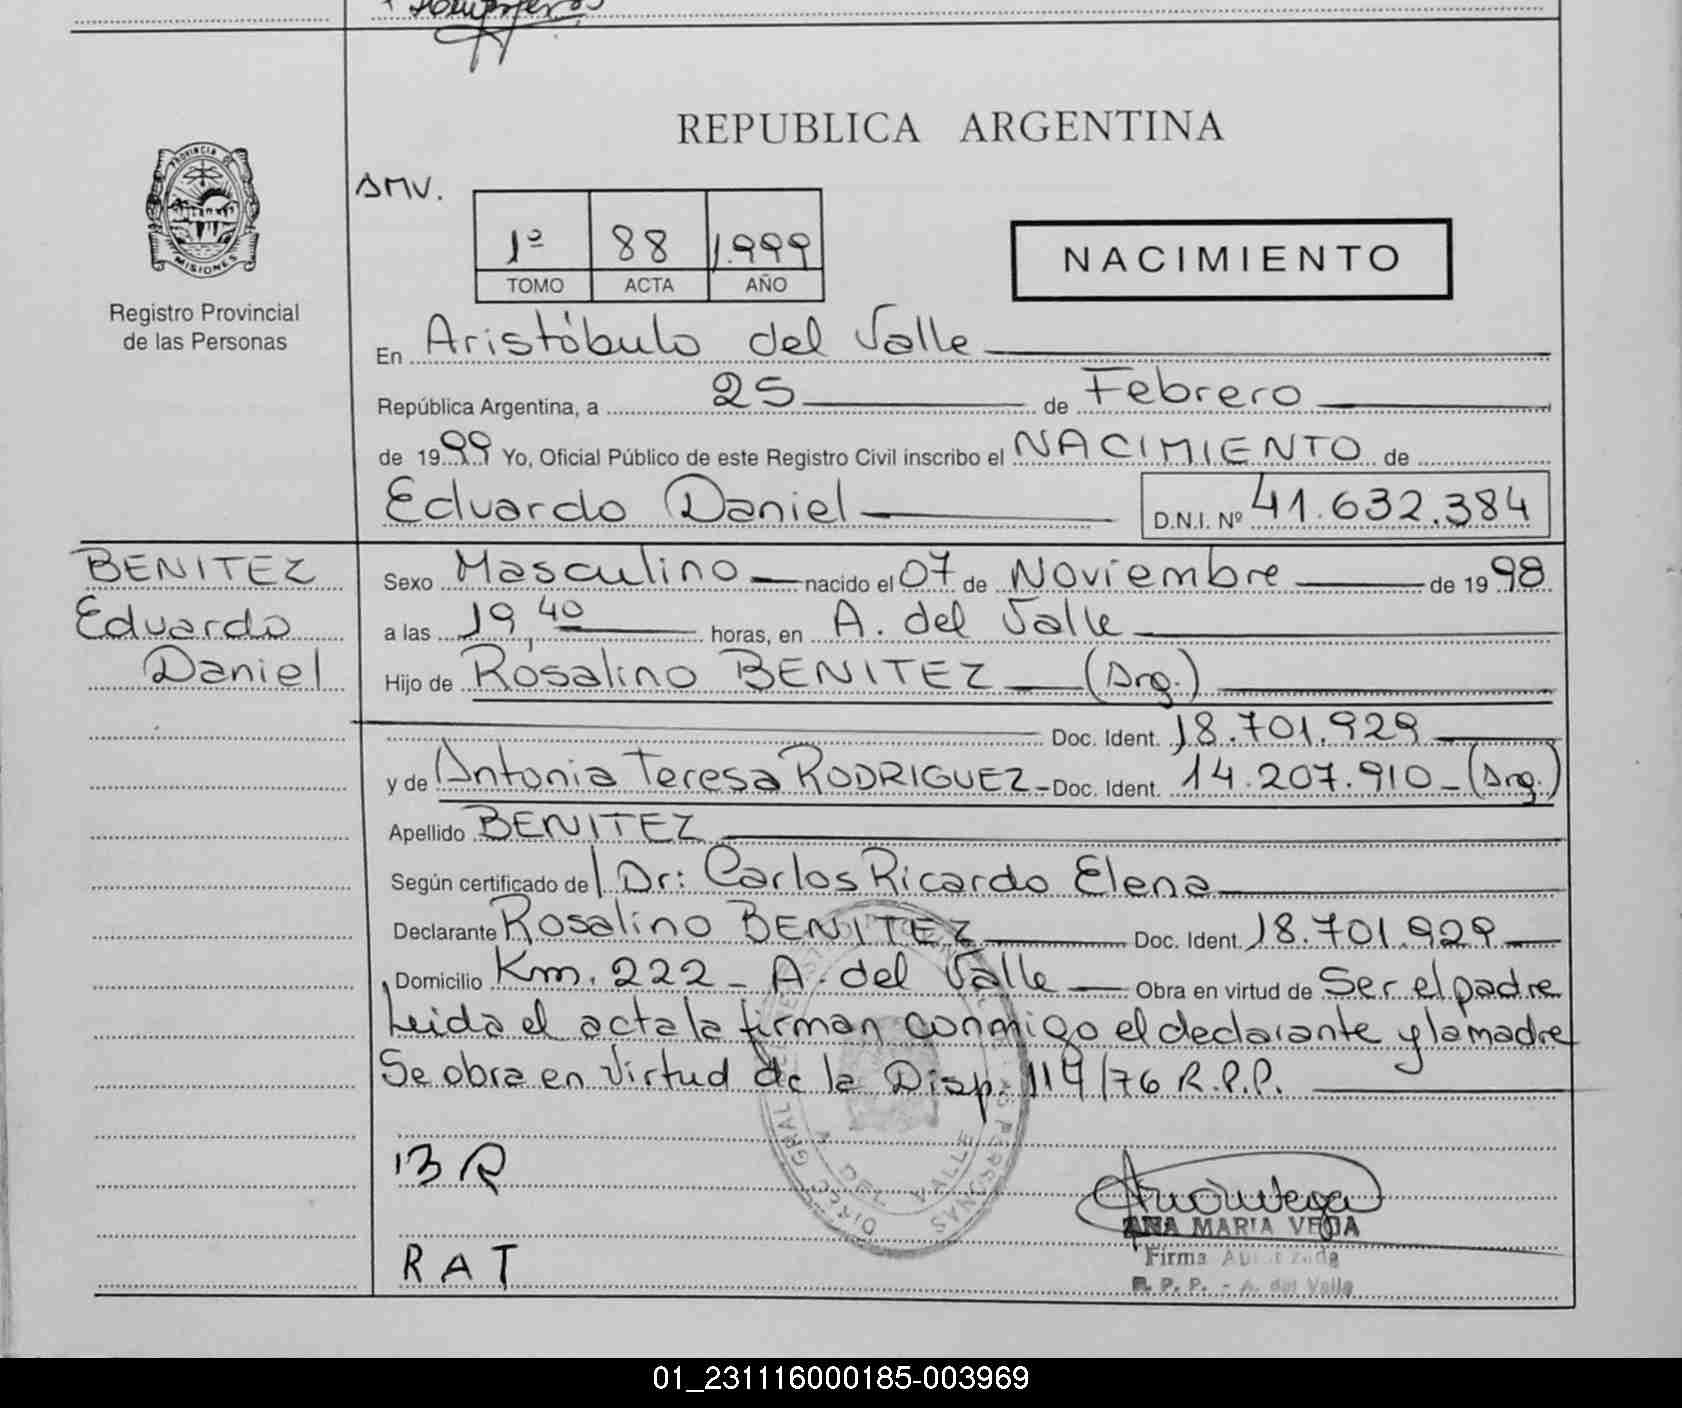 REPUBLICA ARGENTINA
PROVINCIA DE
MISIONES
Registro Provincial
de las Personas
AMV.
1º 88 1.999
TOMO ACTA AÑO
NACIMIENTO
En Aristóbulo del Valle
República Argentina, a 25 de Febrero
de 1999 Yo, Oficial Público de este Registro Civil inscribo el NACIMIENTO de
Eduardo Daniel D.N.I. Nº 41.632.384
BENITEZ
Eduardo
Daniel
Sexo Masculino nacido el 07 de Noviembre de 1998
a las 19,40 horas, en A. del Valle
Hijo de Rosalino BENITEZ (Arg.)
Doc. Ident. 18.701.929
y de Antonia Teresa RODRIGUEZ - Doc. Ident. 14.207.910 - (Arg.)
Apellido BENITEZ
Según certificado del Dr: Carlos Ricardo Elena
Declarante Rosalino BENITEZ Doc. Ident. 18.701.929
Domicilio Km. 222 - A. del Valle Obra en virtud de Ser el padre
Leida el acta la firman conmigo el declarante y la madre
Se obra en virtud de la Disp. 119/76 R.P.P.
B R
R A T
ANA MARIA VEGA
Firma Autorizada
R. P. P. - A. del Valle
01_231116000185-003969